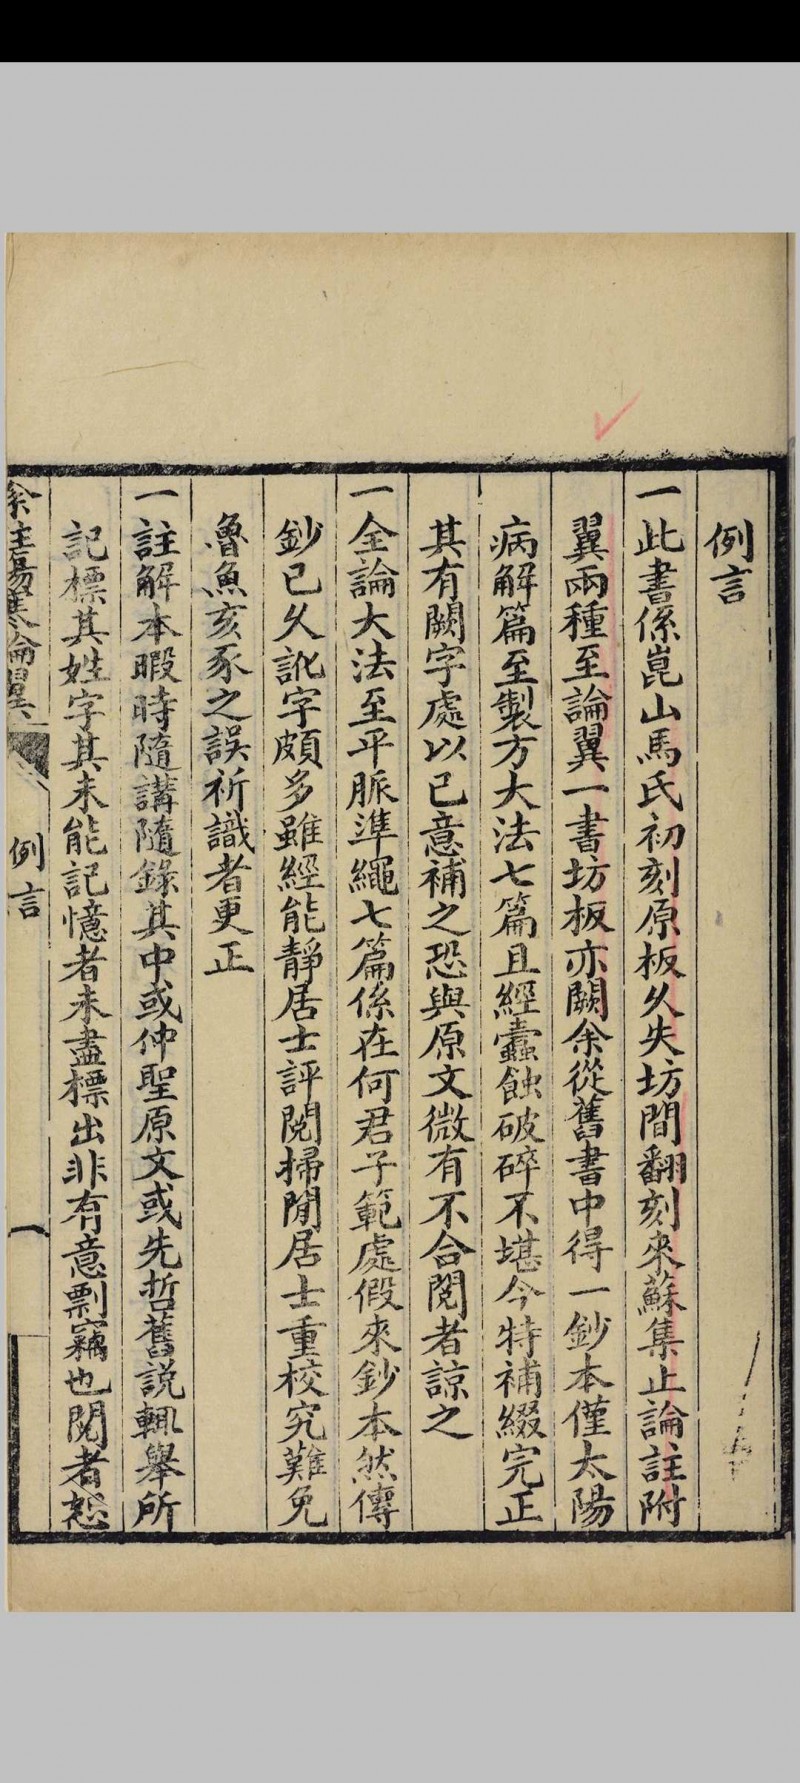 例言
一此書係崑山馬氏初刻原板久失坊間翻刻來蘇集止論註附
翼兩種至論翼一書坊板亦闕余從舊書中得一鈔本僅太陽
病解篇至製方大法七篇且經蠹蝕破碎不堪今特補綴完正
其有闕字處以已意補之恐與原文微有不合閱者諒之
一全論大法至平脈準繩七篇係在何君子範處假來鈔本然傳
鈔已久訛字頗多雖經能靜居士評閱掃閒居士重校究難免
魯魚亥豕之誤祈識者更正
一註解本暇時隨講隨錄其中或仲聖原文或先哲舊說輒舉所
記標其姓字其未能記憶者未盡標出非有意剽竊也閱者恕
余註傷寒論翼
例言
一